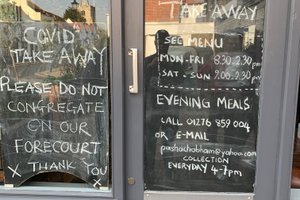 COVID
TAKE AWAY
PLEASE DO NOT
CONGREGATE
ON OUR
FORECOURT
X THANK YOU X
TAKE AWAY
SEE MENU
MON-FRI 8.30-2.30
SAT-SUN 9.00-2.30
EVENING MEALS
CALL 01276 859004
OR E-MAIL
pashachobham@yahoo.com
COLLECTION
EVERYDAY 4-7pm